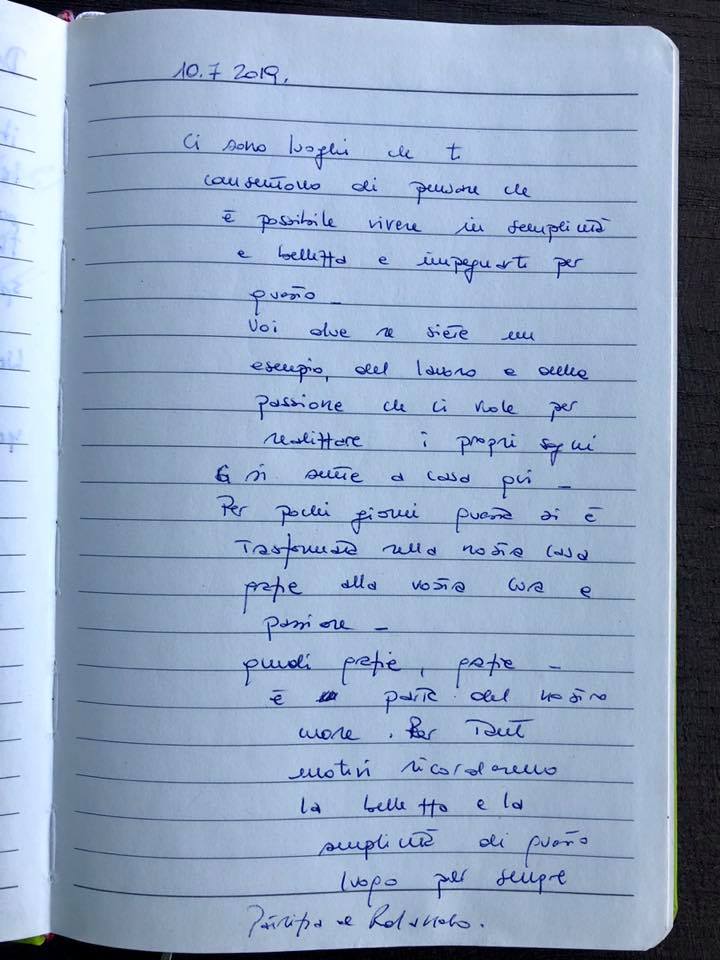 10.7 2019.
Ci sono luoghi che ti
consentono di pensare che
è possibile vivere in semplicità
e bellezza e impegnarti per
questo _
Voi due ne siete un
esempio, del lavoro e della
passione che ci vuole per
realizzare i propri sogni
Ci si sente a casa qui _
Per pochi giorni questa si è
trasformata nella nostra casa
grazie alla vostra cura e
passione _
quindi grazie, grazie _
è parte del nostro
cuore. Per tanti
motivi ricorderemo
la bellezza e la
semplicità di questo
luogo per sempre
e